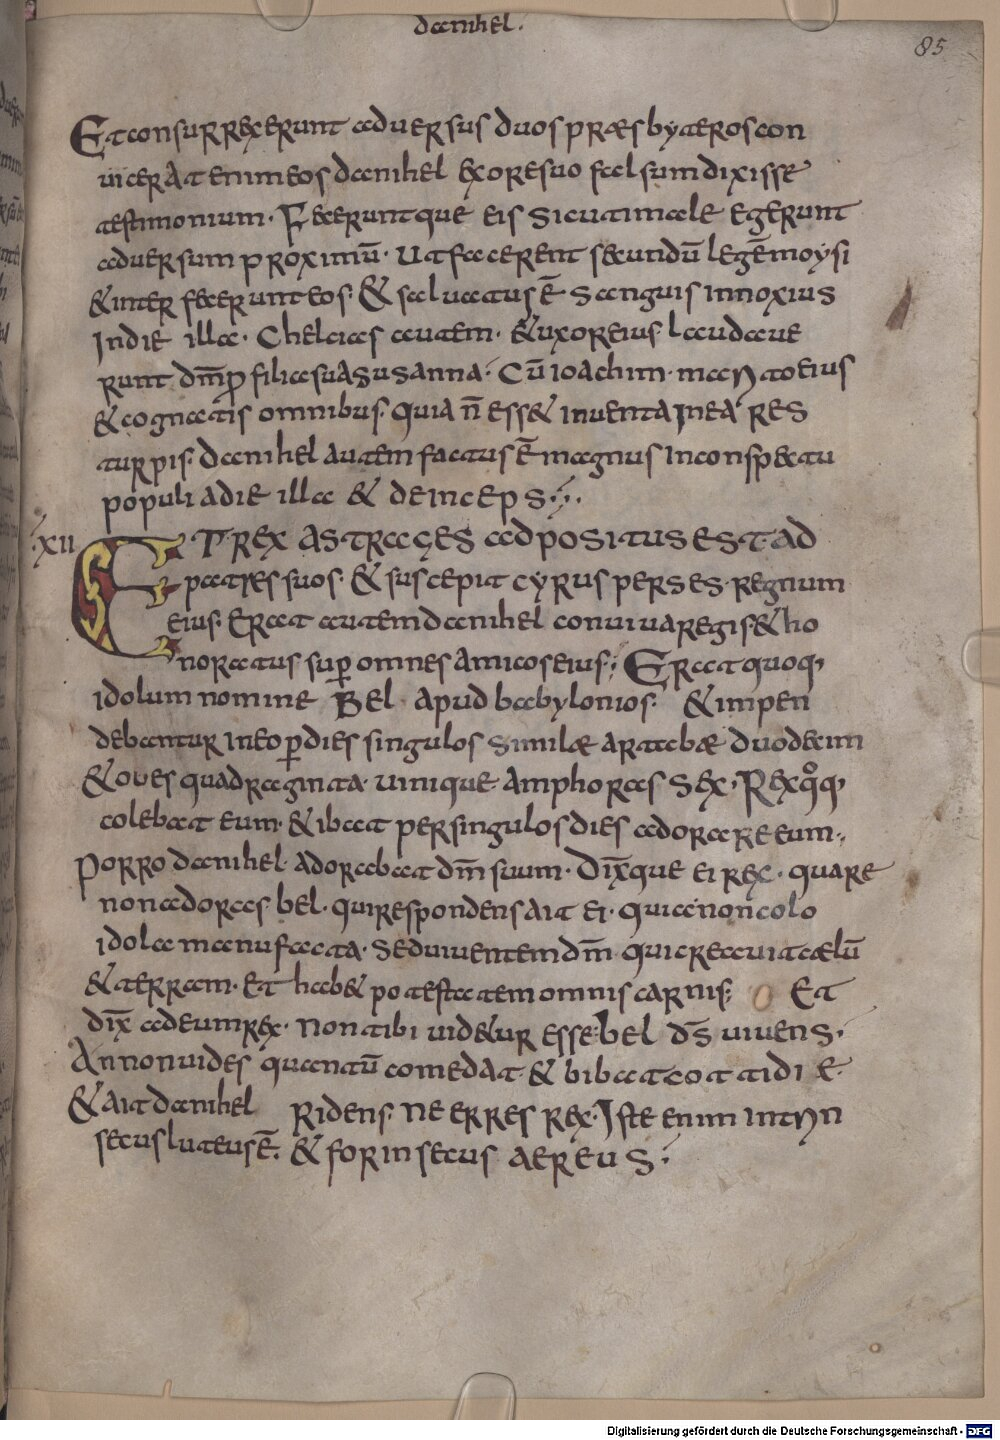 danihel.
85
Et consurrexerunt aduersus duos præsbyteros con
uicerat enim eos danihel ex ore suo falsum dixisse
testimonium. Feceruntque eis sicuti male egerunt
aduersum proximū. Ut facerent secundū legē moysi
& interfecerunt eos. & saluatus ē sanguis innoxius
In die illa. Chelcias autem. & uxor eius laudaue
runt dm̄ ꝓ filia sua susanna. Cū ioachim. marito eius
& cognatis omnibus. quia n̄ ess& inuenta In ea res
turpis. danihel autem factus ē magnus In conspectu
populi a die illa & deinceps.
.xii
ET REX ASTRAGES adpositus est ad
patres suos. & suscepit cyrus perses regnum
eius. Erat autem danihel conuiua regis. & ho
noratus suꝑ omnes amicos eius; Erat quoq,
idolum nomine Bel apud babylonios. & impen
debantur In eo ꝑ dies singulos similæ artabæ duodecim
& oues quadraginta. uinique amphoras sex. Rex q̊q,
colebat eum. & ibat per singulos dies adorare eum.
Porro danihel. adorabat dm̄ suum. Dix̄que ei rex. quare
non adoras bel. qui respondens ait ei. quia non colo
idola manufacta. sed uiuentem dm̄. qui creauit cælū
& terram. Et hab& potestatem omnis carnis. Et
dix̄ ad eum rex. Non tibi uid&ur esse bel ds̄ uiuens.
An non uides quantū comedat & bibat cottidiæ
& ait danihel Ridens. Ne erres rex. Iste enim Intrin
secus luteus ē. & forinsecus aereus.
Digitalisierung gefördert durch die Deutsche Forschungsgemeinschaft - DFG